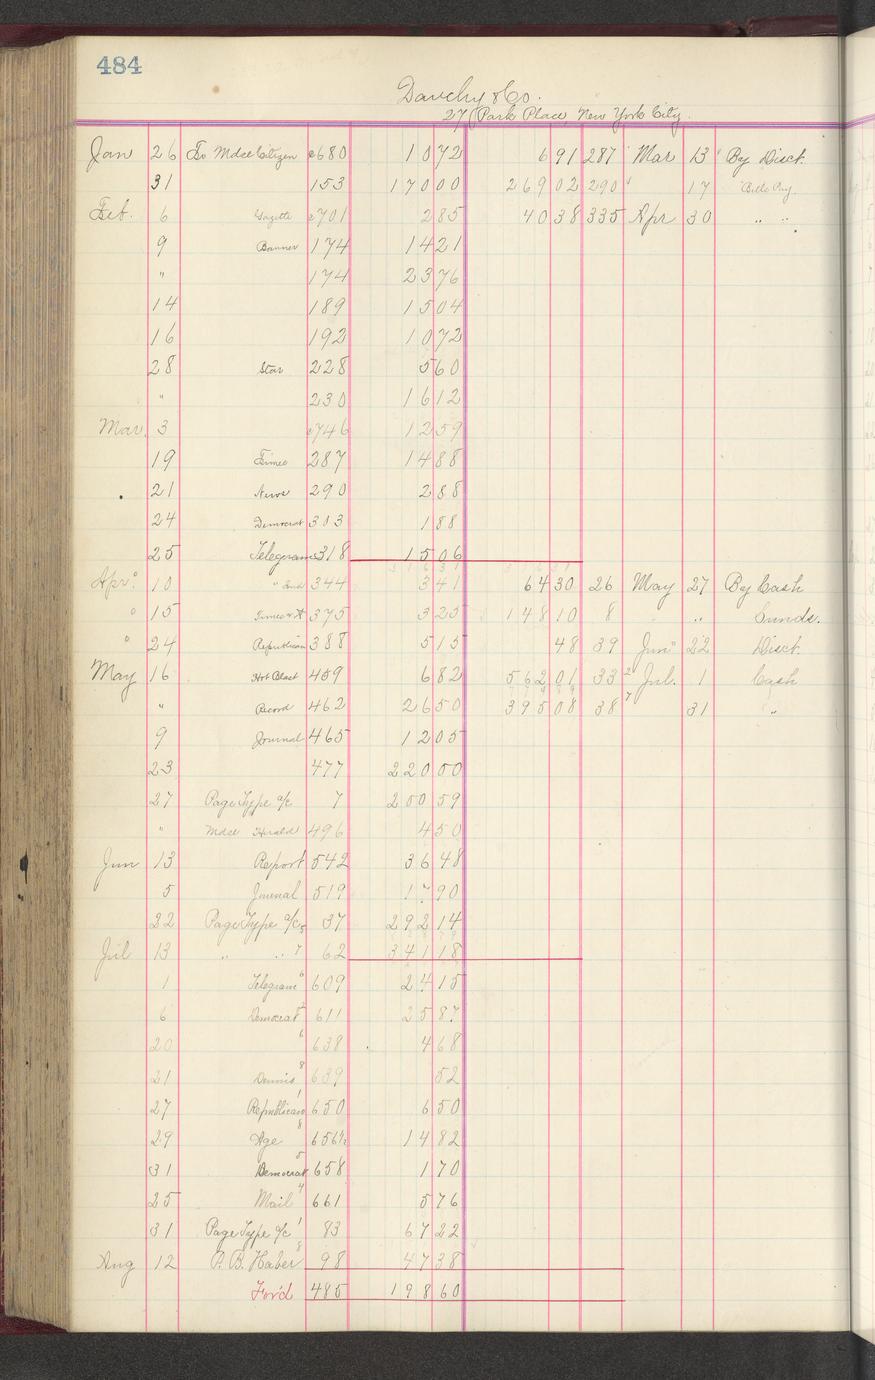 484
Dauchy & Co.
27 Park Place, New York City.
Jan 26 To Mdse Citizen c680 10 72 6 91 287 Mar 13 By Disct.
31 153 170 00 269 02 290 17 Bills Pay
Feb. 6 Gazette c701 2 85 40 38 335 Apr 30 " "
9 Banner 174 14 21
" 174 23 76
14 189 15 04
16 192 10 72
28 Star 228 5 60
" 230 16 12
Mar. 3 c746 12 59
19 Times 287 14 88
21 News 290 2 88
24 Democrat 303 1 88
25 Telegram c318 15 06
Apr. 10 " 344 3 41 64 30 26 May 27 By Cash
" 15 Times 375 3 25 148 10 8 " Sunds.
" 24 Republican 388 5 15 48 39 Jun 22 Disct.
May 16 Hot Blast 459 6 82 562 01 33 Jul. 1 Cash
" Record 462 26 50 395 08 38 31 "
9 Journal 465 12 05
23 477 220 00
27 Page Type a/c 7 200 59
" Mdse Herald 496 4 50
Jun 13 Report 542 36 48
5 Journal 519 17 90
22 Page Type a/c 5 37 292 14
Jul 13 " " 7 62 341 18
1 Telegram 6 609 24 15
6 Democrat 611 25 87
20 6 638 4 68
21 Dennis 8 639 52
27 Republican 1 650 6 50
29 Age 8 656½ 14 82
31 Democrat 5 658 1 70
25 Mail 4 661 5 76
31 Page Type a/c 1 83 67 22
Aug 12 P. B. Haber 8 98 47 38
For'd 485 198 60